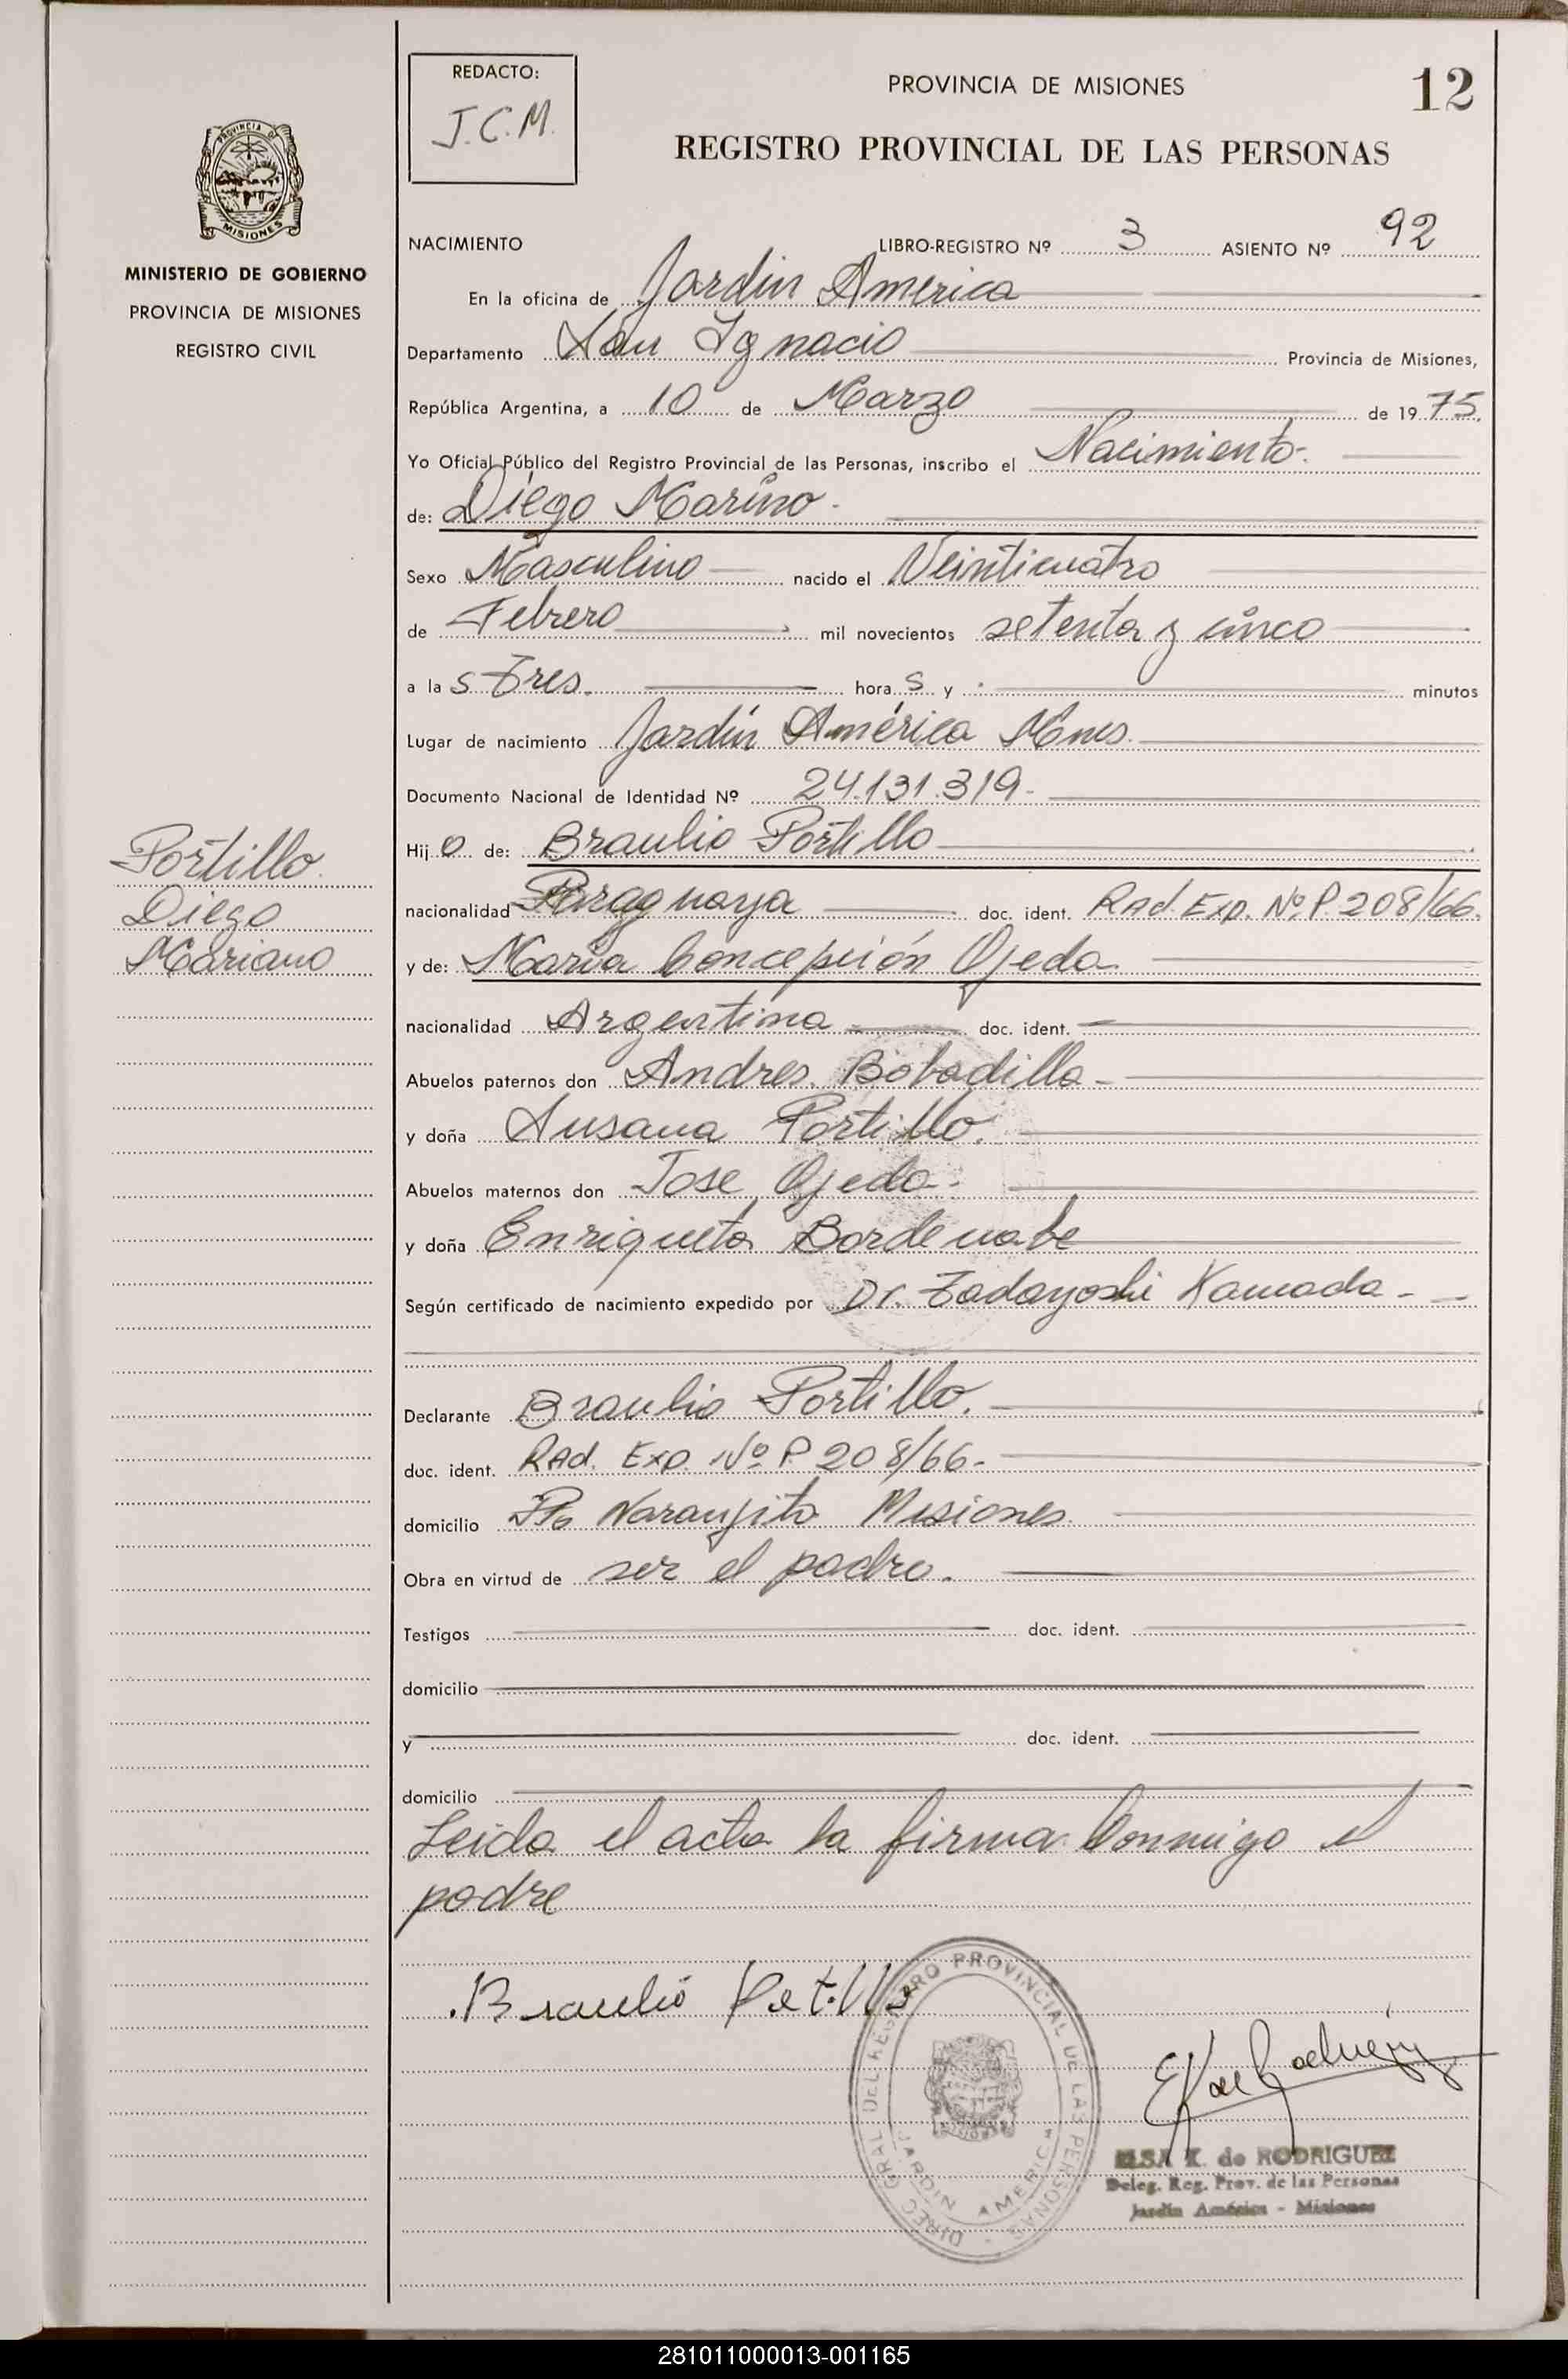 REDACTO:
J.C.M.
PROVINCIA DE MISIONES
12
REGISTRO PROVINCIAL DE LAS PERSONAS
PROVINCIA DE
MISIONES
MINISTERIO DE GOBIERNO
PROVINCIA DE MISIONES
REGISTRO CIVIL
NACIMIENTO LIBRO-REGISTRO Nº 3 ASIENTO Nº 92
En la oficina de Jardin America
Departamento San Ignacio Provincia de Misiones,
República Argentina, a 10 de Marzo de 1975
Yo Oficial Público del Registro Provincial de las Personas, inscribo el Nacimiento.
de: Diego Marino
Sexo Masculino nacido el Veinticuatro
de Febrero mil novecientos setenta y cinco
a las Tres. horas y minutos
Lugar de nacimiento Jardín América Mnes.
Documento Nacional de Identidad Nº 24.131.319.
Hijo de: Braulio Portillo
nacionalidad Paraguaya doc. ident. Rad. Exp. Nº P. 208/66.
y de: María Concepción Ojeda
nacionalidad Argentina doc. ident.
Abuelos paternos don Andres Bobadilla
y doña Susana Portillo.
Abuelos maternos don Jose Ojeda
y doña Enriqueta Bordenabe
Según certificado de nacimiento expedido por Dr. Tadayoshi Kamada
Declarante Braulio Portillo.
doc. ident. Rad. Exp. Nº P 208/66.
domicilio Pto Naranjito Misiones
Obra en virtud de ser el padre.
Testigos doc. ident.
domicilio
y doc. ident.
domicilio
Leida el acta la firma Conmigo el
padre
Portillo
Diego
Mariano
Braulio
DIREC. GRAL. DEL REGISTRO PROVINCIAL DE LAS PERSONAS
JARDIN AMERICA
ELSA K. de RODRIGUEZ
Deleg. Reg. Prov. de las Personas
Jardín América - Misiones
281011000013-001165